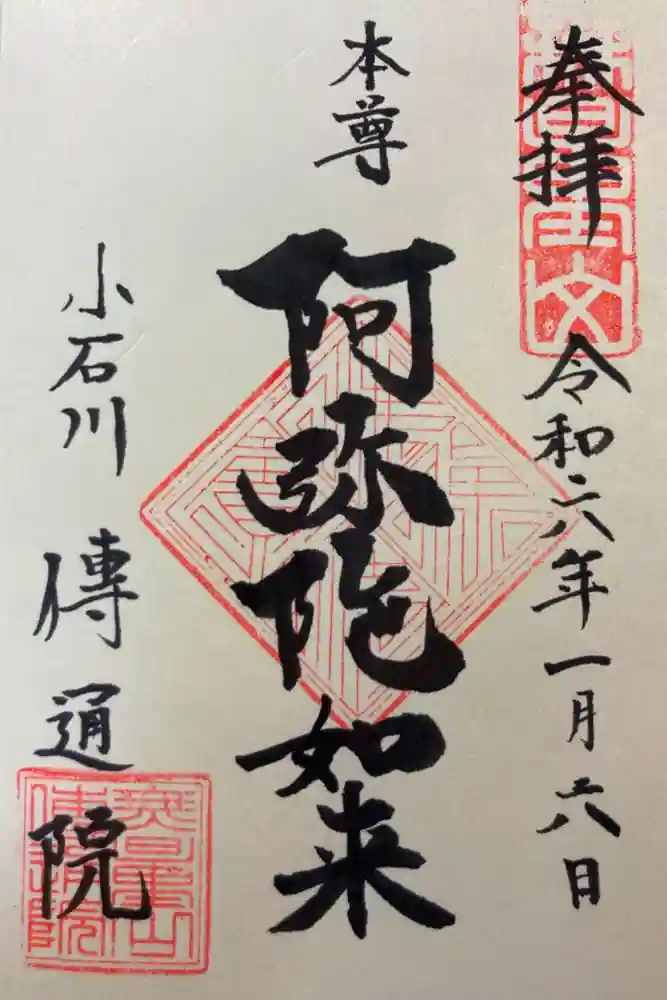 奉拝
令和六年一月六日
本尊
阿弥陀如来
小石川
傳通院